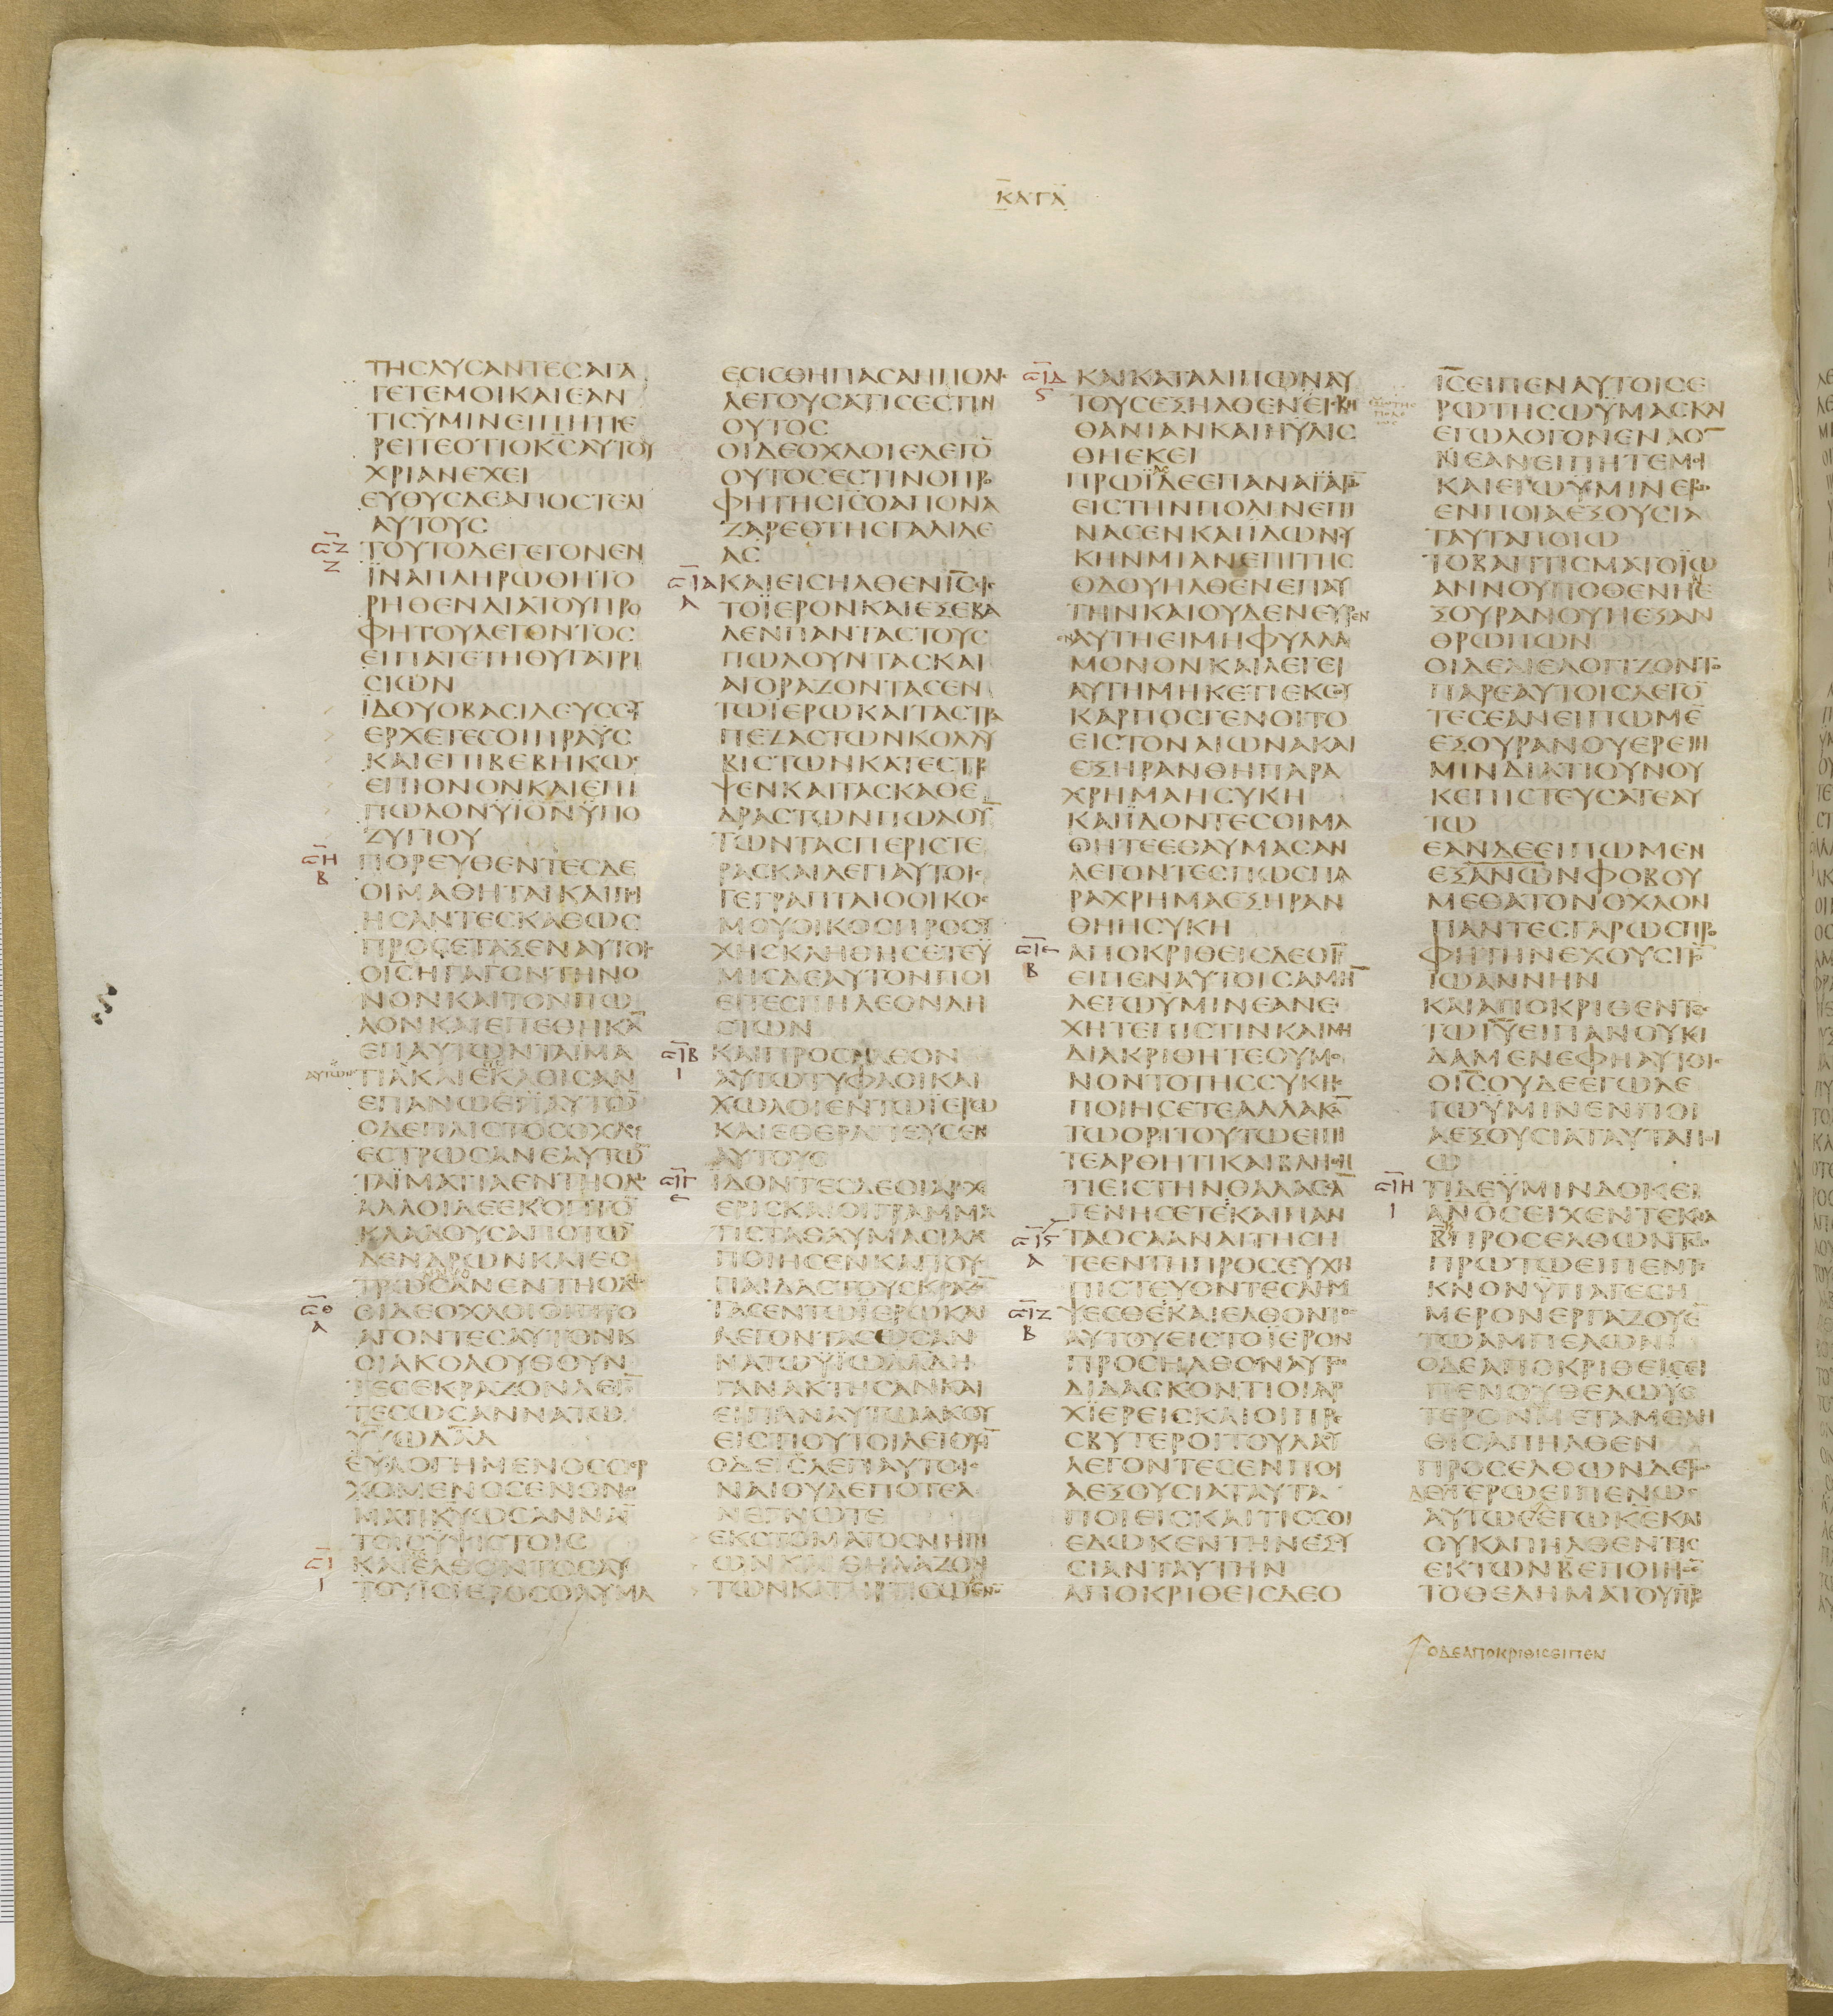 ΚΑΤΑ
ΤΗϹΛΥϹΑΝΤΕϹΑΓΑ
ΓΕΤΕΜΟΙΚΑΙΕΑΝ
ΤΙϹΫΜΙΝΕΙΠΗΤΙΕ
ΡΕΙΤΕΟΤΙΟΚϹΑΥΤΟΥ
ΧΡΙΑΝΕΧΕΙ
ΕΥΘΥϹΔΕΑΠΟϹΤΕΛΛΙ
ΑΥΤΟΥϹ
ϹΖ Ζ ΤΟΥΤΟΔΕΓΕΓΟΝΕΝ
ΪΝΑΠΛΗΡΩΘΗΤΟ
ΡΗΘΕΝΔΙΑΤΟΥΠΡΟ
ΦΗΤΟΥΛΕΓΟΝΤΟϹ
ΕΙΠΑΤΕΤΗΘΥΓΑΤΡΙ
ϹΙΩΝ
ΪΔΟΥΟΒΑϹΙΛΕΥϹϹΟΥ
ΕΡΧΕΤΕϹΟΙΠΡΑΫϹ
ΚΑΙΕΠΙΒΕΒΗΚΩϹ
ΕΠΙΟΝΟΝΚΑΙΕΠΙ
ΠΩΛΟΝΫΪΟΝΫΠΟ
ΖΥΓΙΟΥ
ϹΗ Β ΠΟΡΕΥΘΕΝΤΕϹΔΕ
ΟΙΜΑΘΗΤΑΙΚΑΙΠΟΙ
ΗϹΑΝΤΕϹΚΑΘΩϹ
ΠΡΟϹΕΤΑΞΕΝΑΥΤΟΙϹ
ΟΙϹΗΓΑΓΟΝΤΗΝΟ
ΝΟΝΚΑΙΤΟΝΠΩ
ΛΟΝΚΑΙΕΠΕΘΗΚΑ̅
ΕΠΑΥΤΩΝΤΑΪΜΑ
ΑΥΤΩΝ ΤΙΑΚΑΙΕΚΑΘΙϹΑΝ
ΕΠΑΝΩΕΠΑΥΤΩ̅
ΟΔΕΠΛΙϹΤΟϹΟΧΛΟϹ
ΕϹΤΡΩϹΑΝΕΑΥΤΩ̅
ΤΑΪΜΑΤΙΑΕΝΤΗΟΔΩ
ΑΛΛΟΙΔΕΕΚΟΠΤΟ̅
ΚΛΑΔΟΥϹΑΠΟΤΩ̅
ΔΕΝΔΡΩΝΚΑΙΕϹ
ΤΡΩϹΑΝΕΝΤΗΟΔΩ
Ϲθ Α ΟΙΔΕΟΧΛΟΙΟΙΠΡΟ
ΑΓΟΝΤΕϹΑΥΤΟΝΚΑΙ
ΟΙΑΚΟΛΟΥΘΟΥΝ
ΤΕϹΕΚΡΑΖΟΝΛΕΓΟ̅
ΤΕϹΩϹΑΝΝΑΤΩ
ΥΪΩΔΑΔ
ΕΥΛΟΓΗΜΕΝΟϹΟΕΡ
ΧΟΜΕΝΟϹΕΝΟΝΟ
ΜΑΤΙΚΥΩϹΑΝΝΑΕ̅
ΤΟΙϹΫΨΙϹΤΟΙϹ
ϹΙ Ι ΚΑΙΕΛΘΟΝΤΟϹΑΥ
ΤΟΥΪϹΪΕΡΟϹΟΛΥΜΑ
ΕϹΙϹΘΗΠΑϹΑΗΠΟΛΙϹ
ΛΕΓΟΥϹΑΤΙϹΕϹΤΙΝ
ΟΥΤΟϹ
ΟΙΔΕΟΧΛΟΙΕΛΕΓΟ̅
ΟΥΤΟϹΕϹΤΙΝΟΠΡΟ
ΦΗΤΗϹΙϹΟΑΠΟΝΑ
ΖΑΡΕΘΤΗϹΓΑΛΙΛΕ
ΑϹ
ϹΙΑ Α ΚΑΙΕΙϹΗΛΘΕΝΙϹΕΙϹ
ΤΟΪΕΡΟΝΚΑΙΕΞΕΒΑ
ΛΕΝΠΑΝΤΑϹΤΟΥϹ
ΠΩΛΟΥΝΤΑϹΚΑΙ
ΑΓΟΡΑΖΟΝΤΑϹΕΝ
ΤΩΪΕΡΩΚΑΙΤΑϹΤΡΑ
ΠΕΖΑϹΤΩΝΚΟΛΛΥ
ΒΙϹΤΩΝΚΑΤΕϹΤΡΕ
ΨΕΝΚΑΙΤΑϹΚΑΘΕ
ΔΡΑϹΤΩΝΠΩΛΟΥ̅
ΤΩΝΤΑϹΠΕΡΙϹΤΕ
ΡΑϹΚΑΙΛΕΓΙΑΥΤΟΙϹ
ΓΕΓΡΑΠΤΑΙΟΟΙΚΟϹ
ΜΟΥΟΙΚΟϹΠΡΟϹΕΥ
ΧΗϹΚΛΗΘΗϹΕΤΕΫ
ΜΙϹΔΕΑΥΤΟΝΠΟΙ
ΕΙΤΕϹΠΗΛΕΟΝΛΗ
ϹΤΩΝ
ϹΙΒ Ι ΚΑΙΠΡΟϹΗΛΘΟΝ
ΑΥΤΩΤΥΦΛΟΙΚΑΙ
ΧΩΛΟΙΕΝΤΩΪΕΡΩ
ΚΑΙΕΘΕΡΑΠΕΥϹΕΝ
ΑΥΤΟΥϹ
ϹΙΓ Ε ΙΔΟΝΤΕϹΔΕΟΙΑΡΧΙ
ΕΡΙϹΚΑΙΟΙΓΡΑΜΜΑ
ΤΙϹΤΑΘΑΥΜΑϹΙΑΑ
ΠΟΙΗϹΕΝΚΑΙΤΟΥϹ
ΠΑΙΔΑϹΤΟΥϹΚΡΑΖΟ̅
ΤΑϹΕΝΤΩΪΕΡΩΚΑΙ
ΛΕΓΟΝΤΑϹΩϹΑΝ
ΝΑΤΩΫΪΩΔΑΔΗ
ΓΑΝΑΚΤΗϹΑΝΚΑΙ
ΕΙΠΑΝΑΥΤΩΑΚΟΥ
ΕΙϹΤΙΟΥΤΟΙΛΕΓΟΥϹΙ̅
ΟΔΕΙϹΛΕΓΙΑΥΤΟΙϹ
ΝΑΙΟΥΔΕΠΟΤΕΑ
ΝΕΓΝΩΤΕ
ΕΚϹΤΟΜΑΤΟϹΝΗΠΙ
ΩΝΚΑΙΘΗΛΑΖΟΝ
ΤΩΝΚΑΤΗΡΤΙϹΩΑΙΝΟ̅
ϹΙΔ Ϛ ΚΑΙΚΑΤΑΛΙΠΩΝΑΥ
ΤΟΥϹΕΞΗΛΘΕΝΕΙϹΒΗ
ΘΑΝΙΑΝΚΑΙΗΫΛΙϹ
ΘΗΕΚΕΙ
ΠΡΩΪΔΕΕΠΑΝΑΓΑΓΩ̅
ΕΙϹΤΗΝΠΟΛΙΝΕΠΙ
ΝΑϹΕΝΚΑΙΪΔΩΝϹΥ
ΚΗΝΜΙΑΝΕΠΙΤΗϹ
ΟΔΟΥΗΛΘΕΝΕΠΑΥ
ΤΗΝΚΑΙΟΥΔΕΝΕΥΡΕΝ
ΕΝΑΥΤΗΕΙΜΗΦΥΛΛΑ
ΜΟΝΟΝΚΑΙΛΕΓΕΙ
ΑΥΤΗΜΗΚΕΤΙΕΚϹΟΥ
ΚΑΡΠΟϹΓΕΝΟΙΤΟ
ΕΙϹΤΟΝΑΙΩΝΑΚΑΙ
ΕΞΗΡΑΝΘΗΠΑΡΑ
ΧΡΗΜΑΗϹΥΚΗ
ΚΑΙΪΔΟΝΤΕϹΟΙΜΑ
ΘΗΤΕΕΘΑΥΜΑϹΑΝ
ΛΕΓΟΝΤΕϹΠΩϹΠΑ
ΡΑΧΡΗΜΑΕΞΗΡΑΝ
ΘΗΗϹΥΚΗ
ϹΙΕ Β ΑΠΟΚΡΙΘΕΙϹΔΕΟΙϹ
ΕΙΠΕΝΑΥΤΟΙϹΑΜΗ̅
ΛΕΓΩΫΜΙΝΕΑΝΕ
ΧΗΤΕΠΙϹΤΙΝΚΑΙΜΗ
ΔΙΑΚΡΙΘΗΤΕΟΥΜΟ
ΝΟΝΤΟΤΗϹϹΥΚΗϹ
ΠΟΙΗϹΕΤΕΑΛΛΑΚΑ̅
ΤΩΟΡΙΤΟΥΤΩΕΙΠΗ
ΤΕΑΡΘΗΤΙΚΑΙΒΛΗΘΗ
ΤΙΕΙϹΤΗΝΘΑΛΑϹϹΑ̅
ΓΕΝΗϹΕΤΕΚΑΙΠΑΝ
ϹΙϚ Α ΤΑΟϹΑΑΝΑΙΤΗϹΗ
ΤΕΕΝΤΗΠΡΟϹΕΥΧΗ
ΠΙϹΤΕΥΟΝΤΕϹΛΗΜ
ϹΙΖ Β ΨΕϹΘΕΚΑΙΕΛΘΟΝΤΟϹ
ΑΥΤΟΥΕΙϹΤΟΪΕΡΟΝ
ΠΡΟϹΗΛΘΟΝΑΥΤΩ
ΔΙΔΑϹΚΟΝΤΙΟΙΑΡ
ΧΪΕΡΕΙϹΚΑΙΟΙΠΡΕ
ϹΒΥΤΕΡΟΙΤΟΥΛΑΟΥ
ΛΕΓΟΝΤΕϹΕΝΠΟΙ
ΑΕΞΟΥϹΙΑΤΑΥΤΑ
ΠΟΙΕΙϹΚΑΙΤΙϹϹΟΙ
ΕΔΩΚΕΝΤΗΝΕΞΟΥ
ϹΙΑΝΤΑΥΤΗΝ
ΑΠΟΚΡΙΘΕΙϹΔΕΟ
ΙϹΕΙΠΕΝΑΥΤΟΙϹΕ
ΡΩΤΗϹΩΫΜΑϹΚΑΓΩ
ΕΓΩΛΟΓΟΝΕΝΑΟ̅
ΝΕΑΝΕΙΠΗΤΕΜΟΙ
ΚΑΙΕΓΩΫΜΙΝΕΡΩ
ΕΝΠΟΙΑΕΞΟΥϹΙΑ
ΤΑΥΤΑΠΟΙΩ
ΤΟΒΑΠΤΙϹΜΑΤΟΪΩ
ΑΝΝΟΥΠΟΘΕΝΗΕ
ΞΟΥΡΑΝΟΥΗΕΞΑΝ
ΘΡΩΠΩΝ
ΟΙΔΕΔΙΕΛΟΓΙΖΟΝΤΟ
ΠΑΡΕΑΥΤΟΙϹΛΕΓΟ̅
ΤΕϹΕΑΝΕΙΠΩΜΕ̅
ΕΞΟΥΡΑΝΟΥΕΡΕΙΗ
ΜΙΝΔΙΑΤΙΟΥΝΟΥ
ΚΕΠΙϹΤΕΥϹΑΤΕΑΥ
ΤΩ
ΕΑΝΔΕΕΙΠΩΜΕΝ
ΕΞΑΝΩΝΦΟΒΟΥ
ΜΕΘΑΤΟΝΟΧΛΟΝ
ΠΑΝΤΕϹΓΑΡΩϹΠΡΟ
ΦΗΤΗΝΕΧΟΥϹΙΤΟ̅
ΪΩΑΝΝΗΝ
ΚΑΙΑΠΟΚΡΙΘΕΝΤΕϹ
ΤΩΙΥΕΙΠΑΝΟΥΚΟΙ
ΔΑΜΕΝΕΦΗΑΥΤΟΙϹ
ΟΙϹΟΥΔΕΕΓΩΛΕ
ΓΩΫΜΙΝΕΝΠΟΙ
ΑΕΞΟΥϹΙΑΤΑΥΤΑΠΟΙ
Ω
ϹΙΗ Ι ΤΙΔΕΫΜΙΝΔΟΚΕΙ
ΑΝΟϹΕΙΧΕΝΤΕΚΝΑ
ΒΠΡΟϹΕΛΘΩΝΤΩ
ΠΡΩΤΩΕΙΠΕΝΤΕ
ΚΝΟΝΫΠΑΓΕϹΗ
ΜΕΡΟΝΕΡΓΑΖΟΥΕ̅
ΤΩΑΜΠΕΛΩΝΙ
ΟΔΕΑΠΟΚΡΙΘΕΙϹΕΙ
ΠΕΝΟΥΘΕΛΩΫϹ
ΤΕΡΟΝΜΕΤΑΜΕΛΗ
ΘΙϹΑΠΗΛΘΕΝ
ΠΡΟϹΕΛΘΩΝΔΕΤΩ
ΕΤΕΡΩΕΙΠΕΝΩϹ
ΑΥΤΩϹΕΓΩΚΕΚΑΙ
ΟΥΚΑΠΗΛΘΕΝΤΙϹ
ΕΚΤΩΝΒΕΠΟΙΗϹΕ̅
ΤΟΘΕΛΗΜΑΤΟΥΠΡϹ
ΟΔΕΑΠΟΚΡΙΘΙϹΕΙΠΕΝ